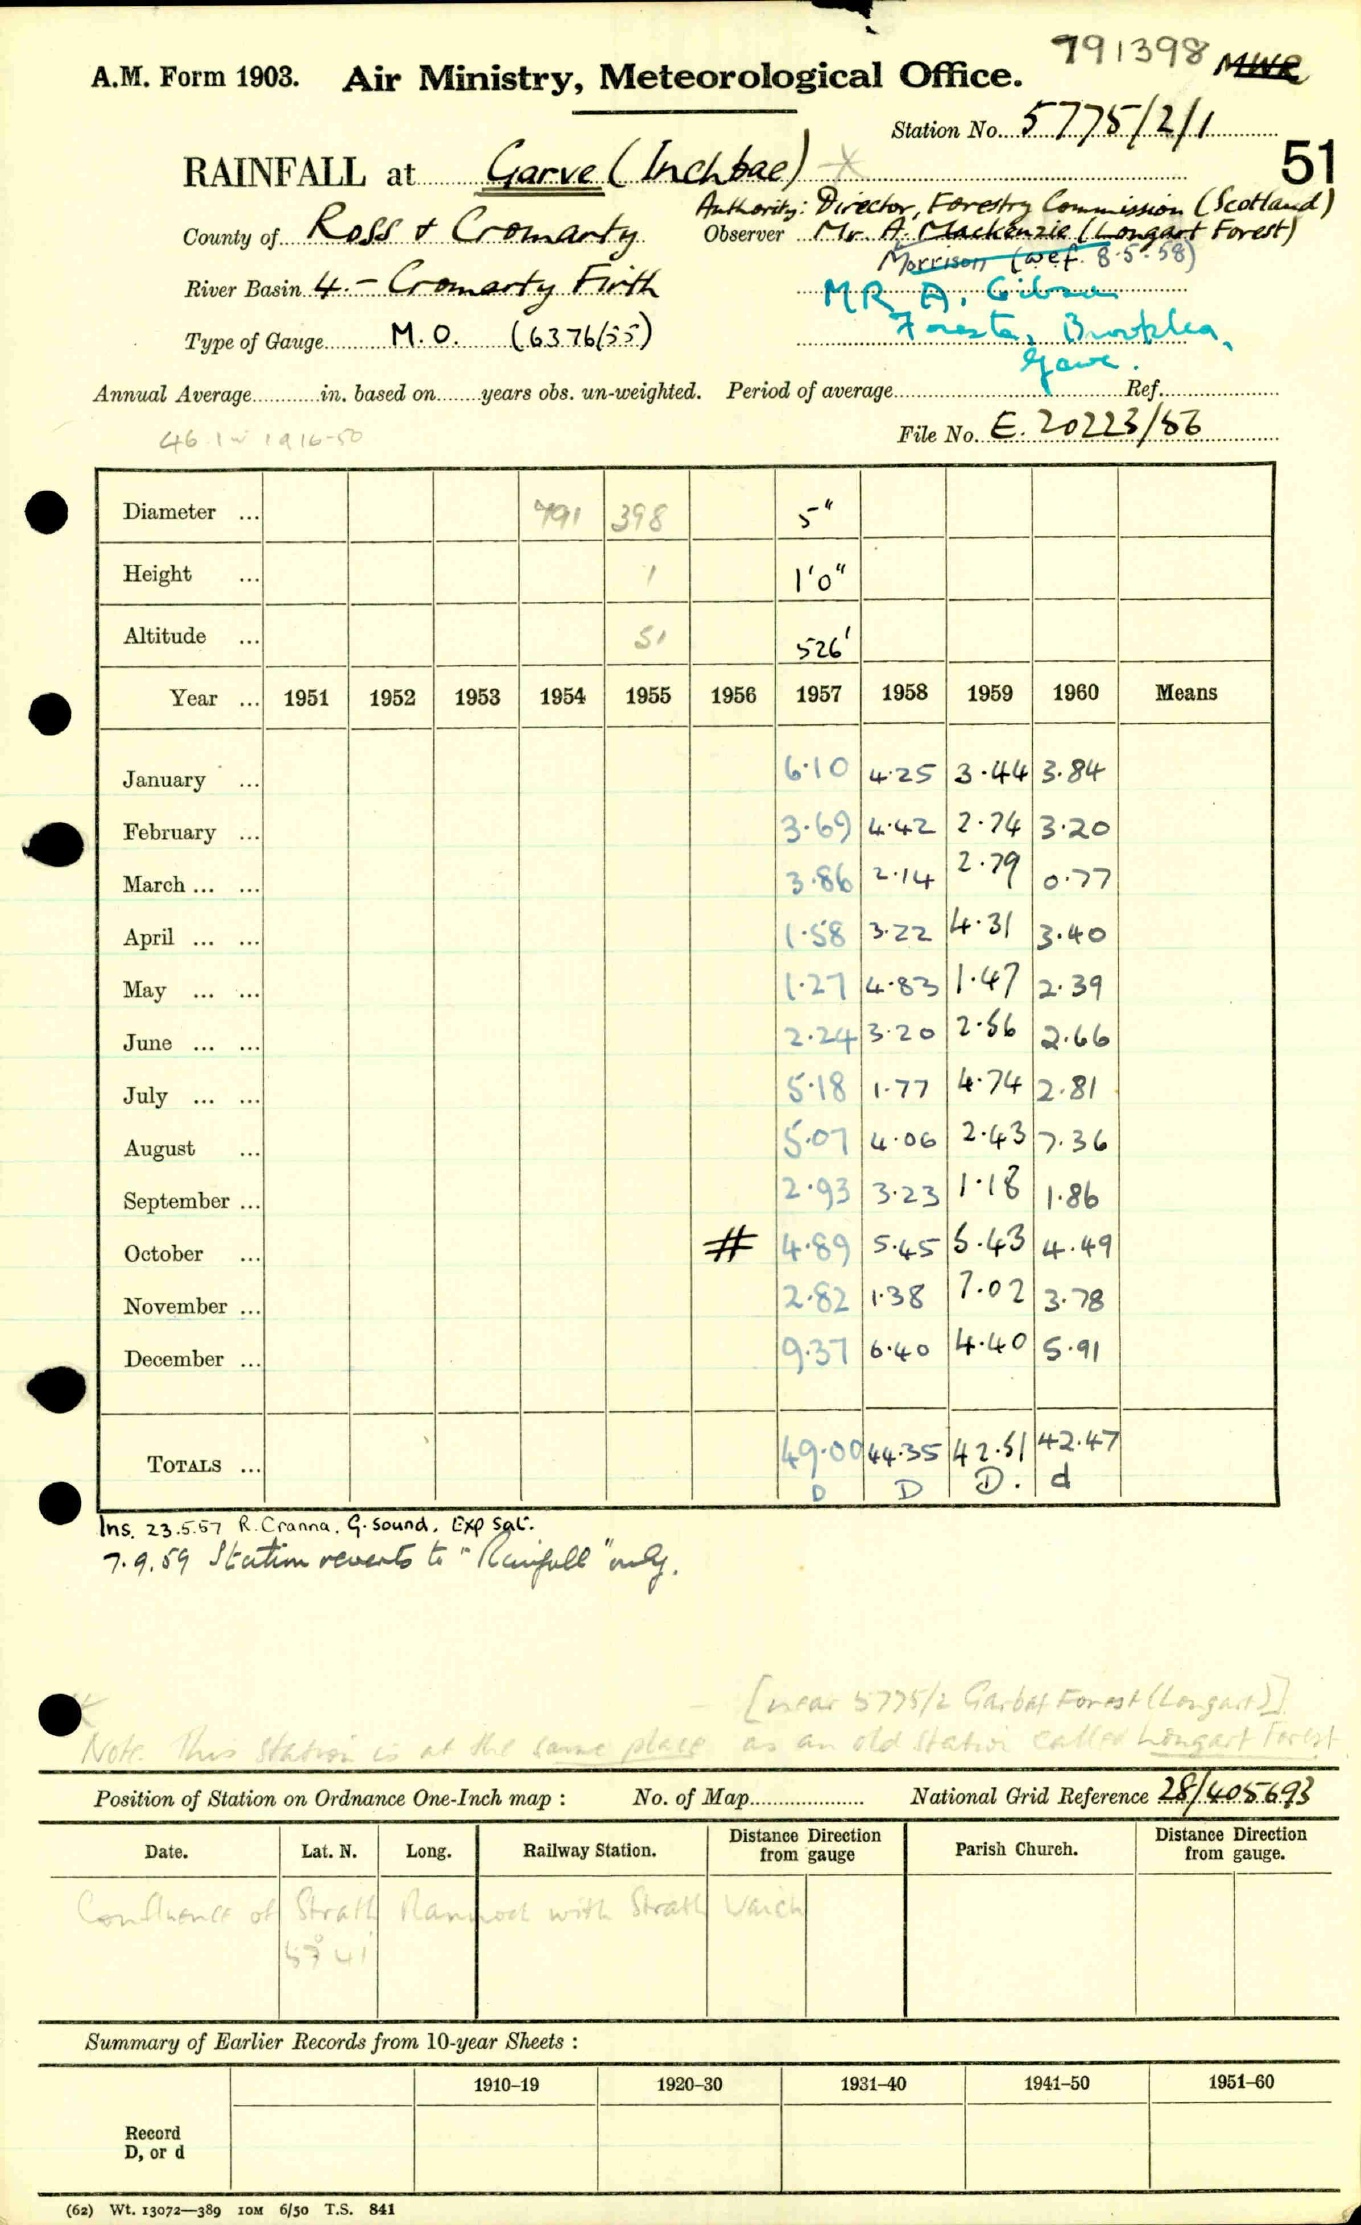 791398 MWR
A.M. Form 1903. Air Ministry, Meteorological Office.
Station No. 5775/2/1
51
RAINFALL at Garve (Inchbae)
Authority: Director, Forestry Commission (Scotland)
County of Ross & Cromarty Observer Mr. A. Mackenzie (Longart Forest)
Morrison (wef. 8.5.58)
River Basin 4.- Cromarty Firth MR A. Gibson
Type of Gauge M.O. (6376/55)
Garve.
Annual Average in. based on years obs. un-weighted. Period of average Ref.
46.1 1916-50 File No. E. 20223/56
Diameter ... 791 398 5"
Height ... 1 1'0"
Altitude ... 51 526'
Year ... 1951 1952 1953 1954 1955 1956 1957 1958 1959 1960 Means
January ... 6.10 4.25 3.44 3.84
February ... 3.69 4.42 2.74 3.20
March ... ... 3.86 2.14 2.79 0.77
April ... ... 1.58 3.22 4.31 3.40
May ... ... 1.27 4.83 1.47 2.39
June ... ... 2.24 3.20 2.56 2.66
July ... ... 5.18 1.77 4.74 2.81
August ... 5.07 4.06 2.43 7.36
September ... 2.93 3.23 1.18 1.86
October ... # 4.89 5.45 5.43 4.49
November ... 2.82 1.38 7.02 3.78
December ... 9.37 6.40 4.40 5.91
TOTALS ... 49.00 44.35 42.51 42.47
D D D. d
Ins. 23.5.57 R. Cranna. G. Sound. Exp Sat.
7.9.59 Station reverts to "Rainfall" only.
[near 5775/2 Garbat Forest (Longart)]
Note. This station is at the same place as an old station called Longart Forest
Position of Station on Ordnance One-Inch map : No. of Map National Grid Reference 28/405693
Date. Lat. N. Long. Railway Station. Distance Direction from gauge Parish Church. Distance Direction from gauge.
Confluence of Strath Rannoch with Strath Vaich
57° 41'
Summary of Earlier Records from 10-year Sheets :
1910–19 1920–30 1931–40 1941–50 1951–60
Record
D, or d
(62) Wt. 13072—389 10M 6/50 T.S. 841